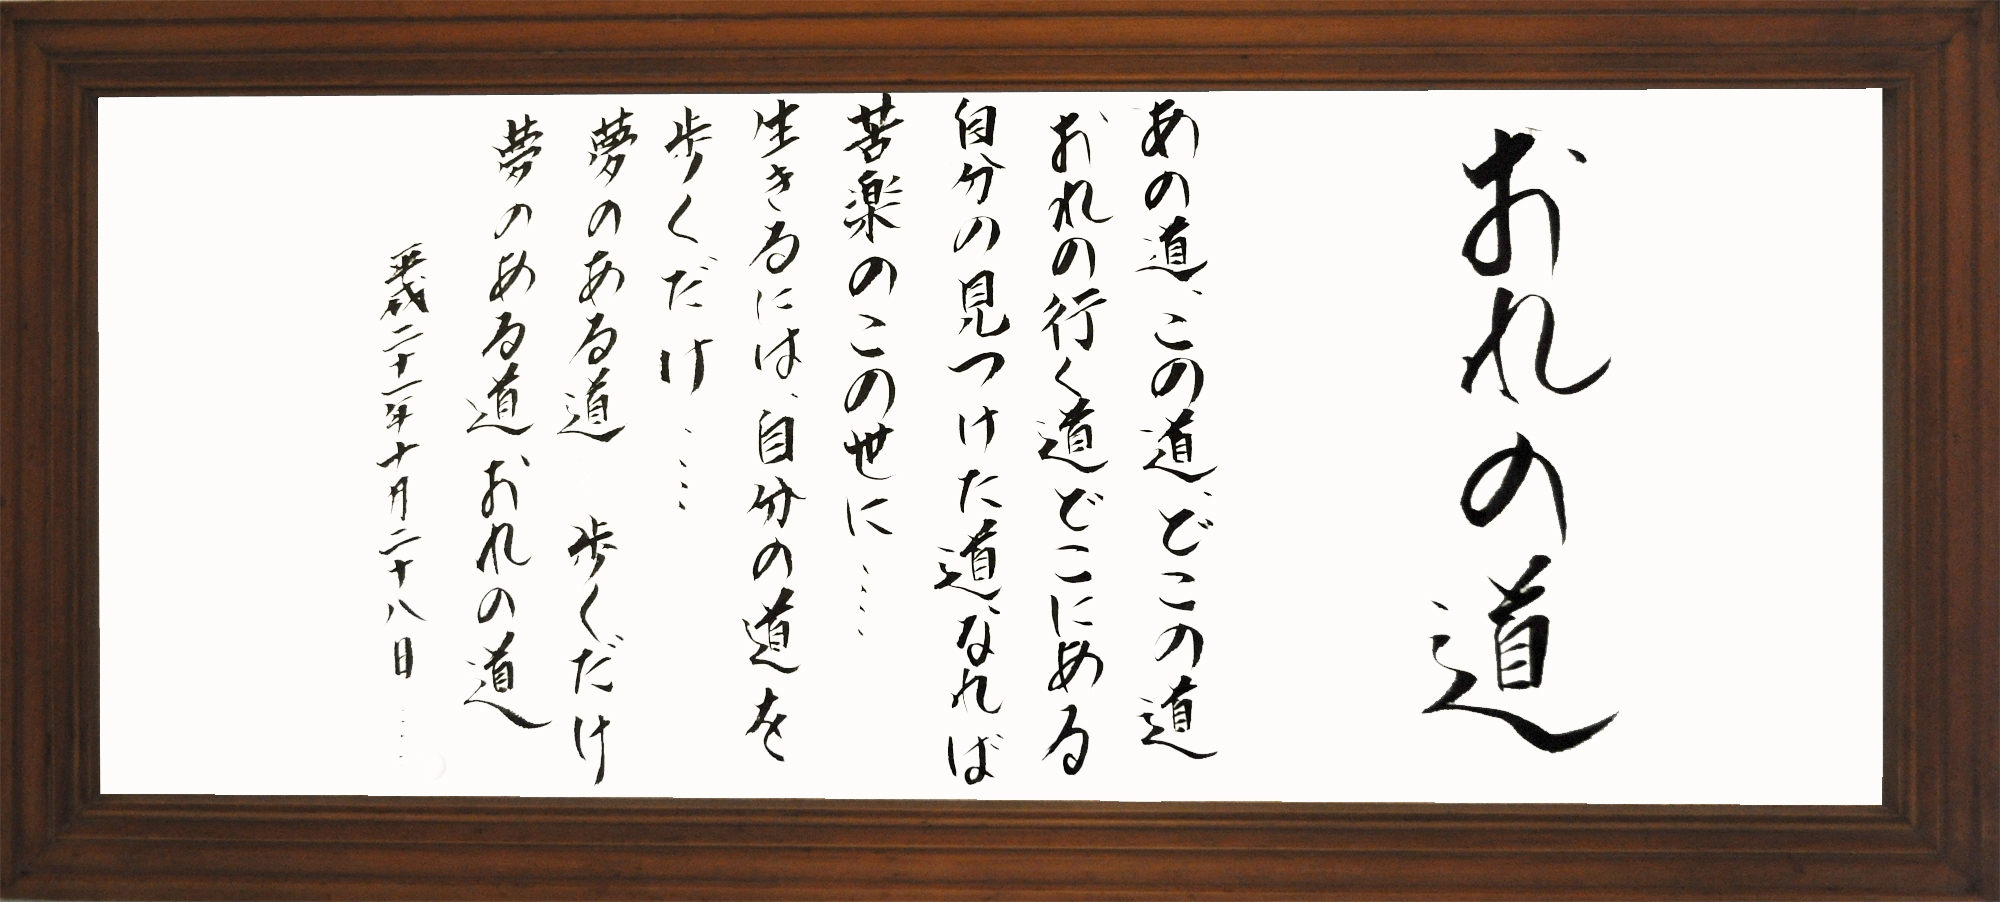 おれの道
あの道、この道、どこの道
おれの行く道どこにある
自分の見つけた道なれば
苦楽のこの世に……
生きるには、自分の道を
歩くだけ……
夢のある道 歩くだけ
夢のある道 おれの道
平成二十一年十月二十八日……